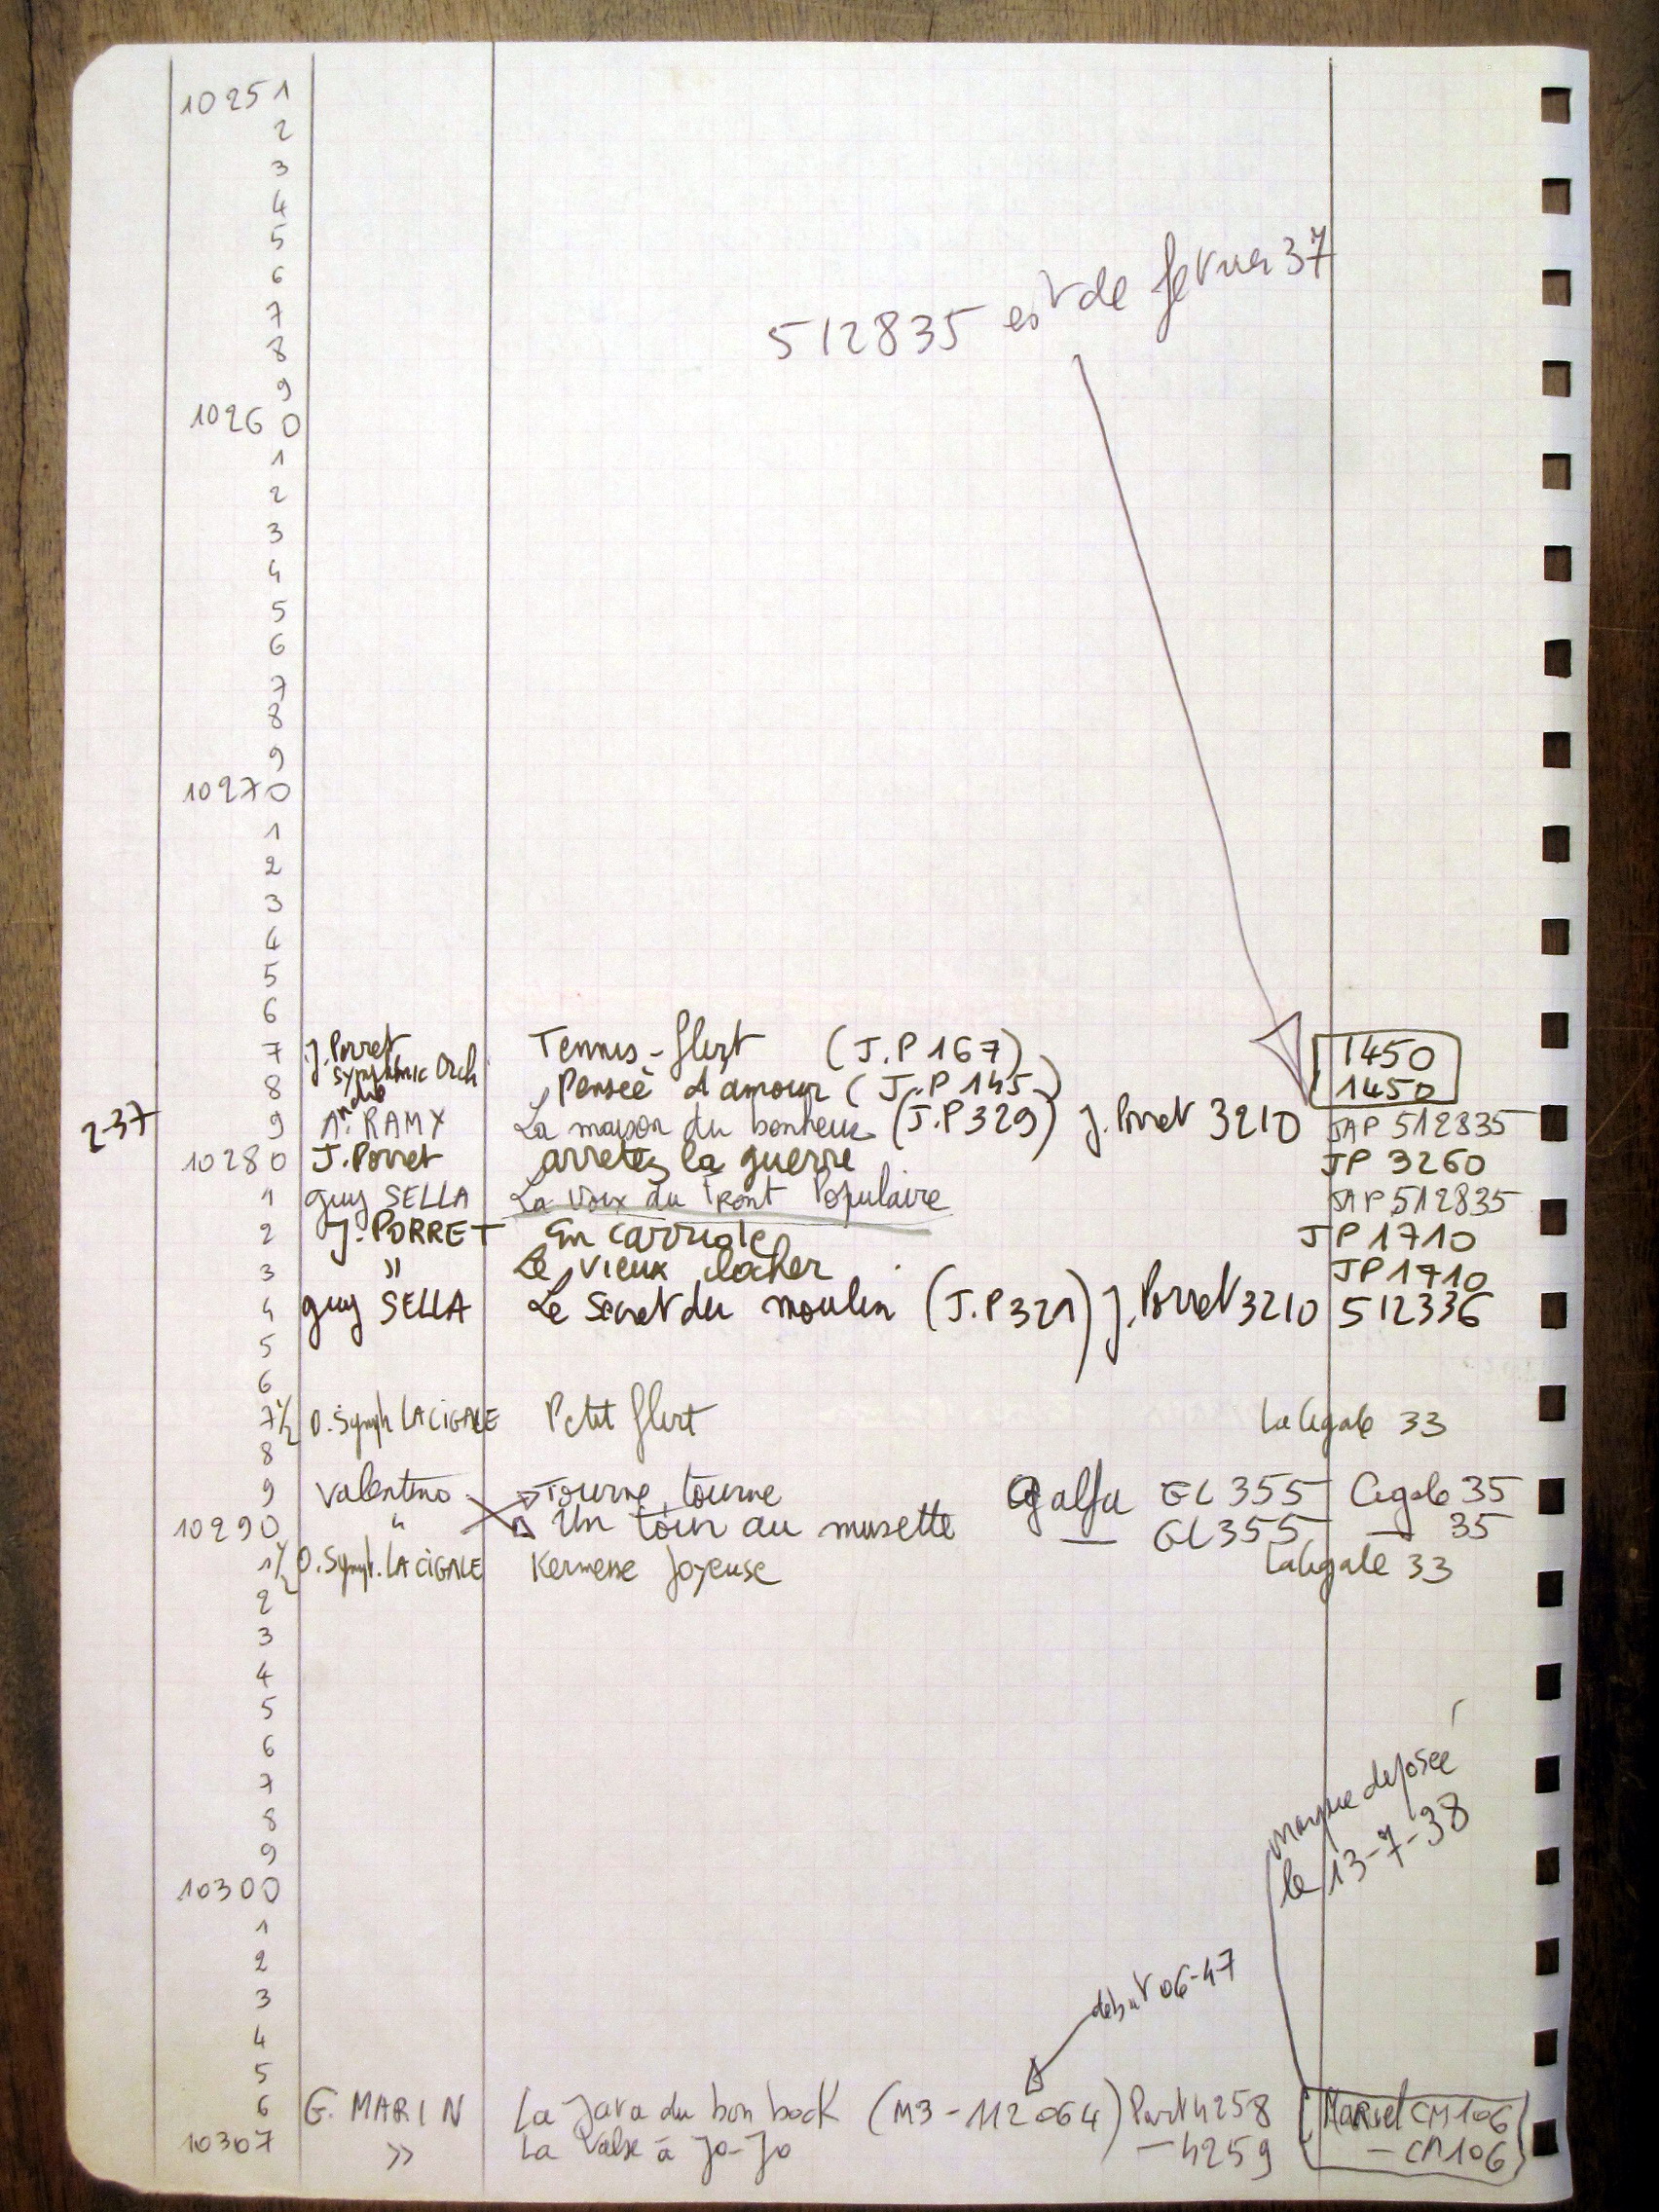 10251
2
3
4
5
6
512835 est de fevrier 37
7
8
9
10260
1
2
3
4
5
6
7
8
9
10270
1
2
3
4
5
6
7 J. Porret Tennis-flirt (J.P 167) 1450
Symphonic Orch
8 Pensée d'amour (J.P 145) 1450
2-37 9 André RAMY La maison du bonheur (J.P 329) J. Porret 3210 JAP 512835
10280 J. Porret arretez la guerre JP 3260
1 guy SELLA La voix du Front Populaire JAP 512835
2 J. PORRET En carriole JP 1710
3 " Le vieux clocher JP 1710
4 guy SELLA Le secret du moulin (J.P 321) J. Porret 3210 512336
5
6
7 1/2 O. Symph LA CIGALE Petit flirt La Cigale 33
8
9 Valentino Tourne, tourne Cigalfa GL 355 Cigale 35
10290 " Un tour au musette — GL 355 — 35
1 1/2 O. Symph. LA CIGALE Kermesse Joyeuse La Cigale 33
2
3
4
5
6
7
8
9
marque déposée
le 13-7-38
10300
1
2
3
début 06-47
4
5
6 G. MARIN La Java du bon bock (M3-112064) Part 4258 Marvel CM106
10307 " La Valse à Jo-Jo — 4259 — CM106